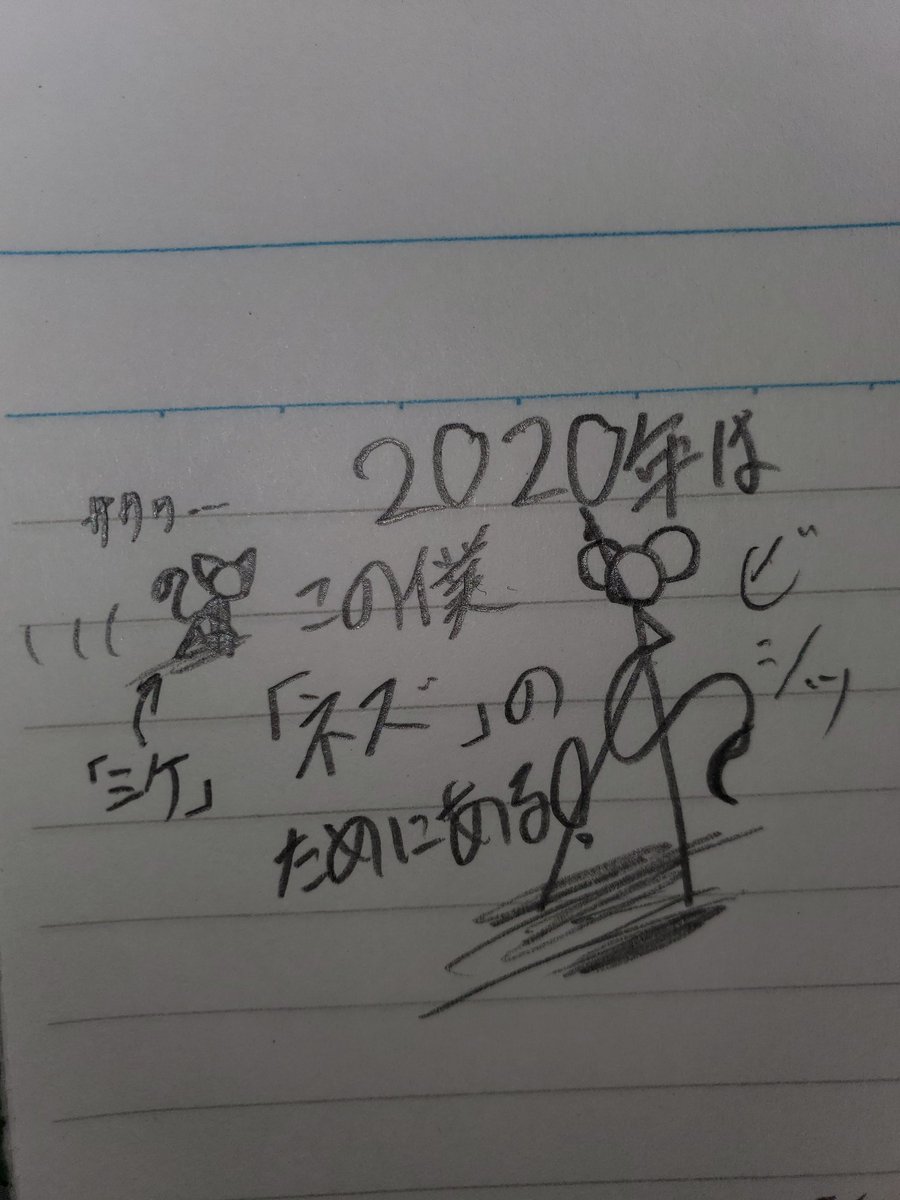 2020年は
この僕
「ネズ」の
ためにある!
ビシッ
「ミケ」